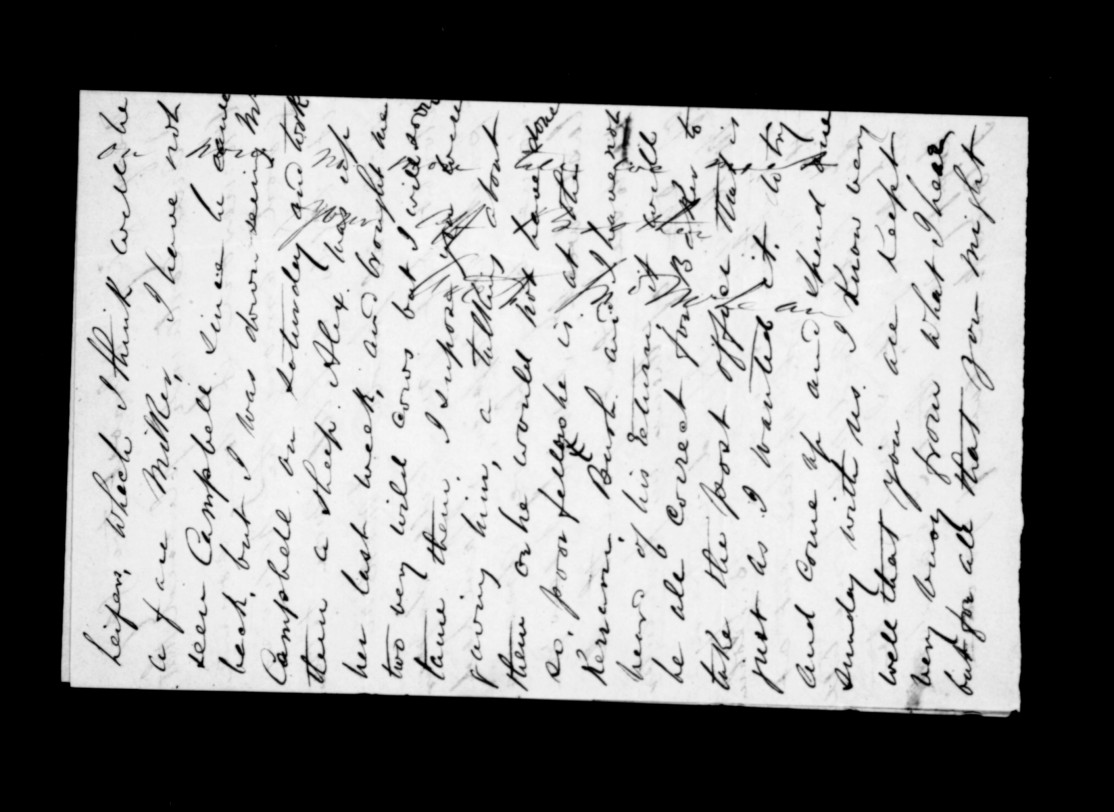 heifers, which I think will be
a fare Milker, I have not
seen Campbell since he came
back, but I was down seeing Mr
Campbell on Saturday and took
them a sheep. Alex. paid
her last week, and brought me
two very wild cows but I will soon
tame them. I supose
paving him, a talking about
them or he would not have gone
so, poor fellow he is at the
Kerrami Bush and I have not
heard of his return it will
be all correct for Brother to
take the post office that is
just as I wanted it. to try
and come up and spend
Sunday with us. I know very
well that you are kept
very busy from what I hear
but for all that you might
your
McLean